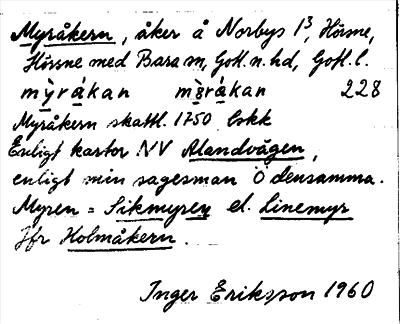 Myråkern, åker å Norbys 1³, Hörsne,
Hörsne med Bara sn, Gotl. n. hd, Gotl. l.
mỳrákan mỳrákan 228
Myråkern skattl. 1750 Lskk
Enligt kartor NV Alandvägen,
enligt min sagesman Ö densamma.
Myren = Sikmyren el. Linemyr
Jfr Holmåkern.
Inger Eriksson 1960